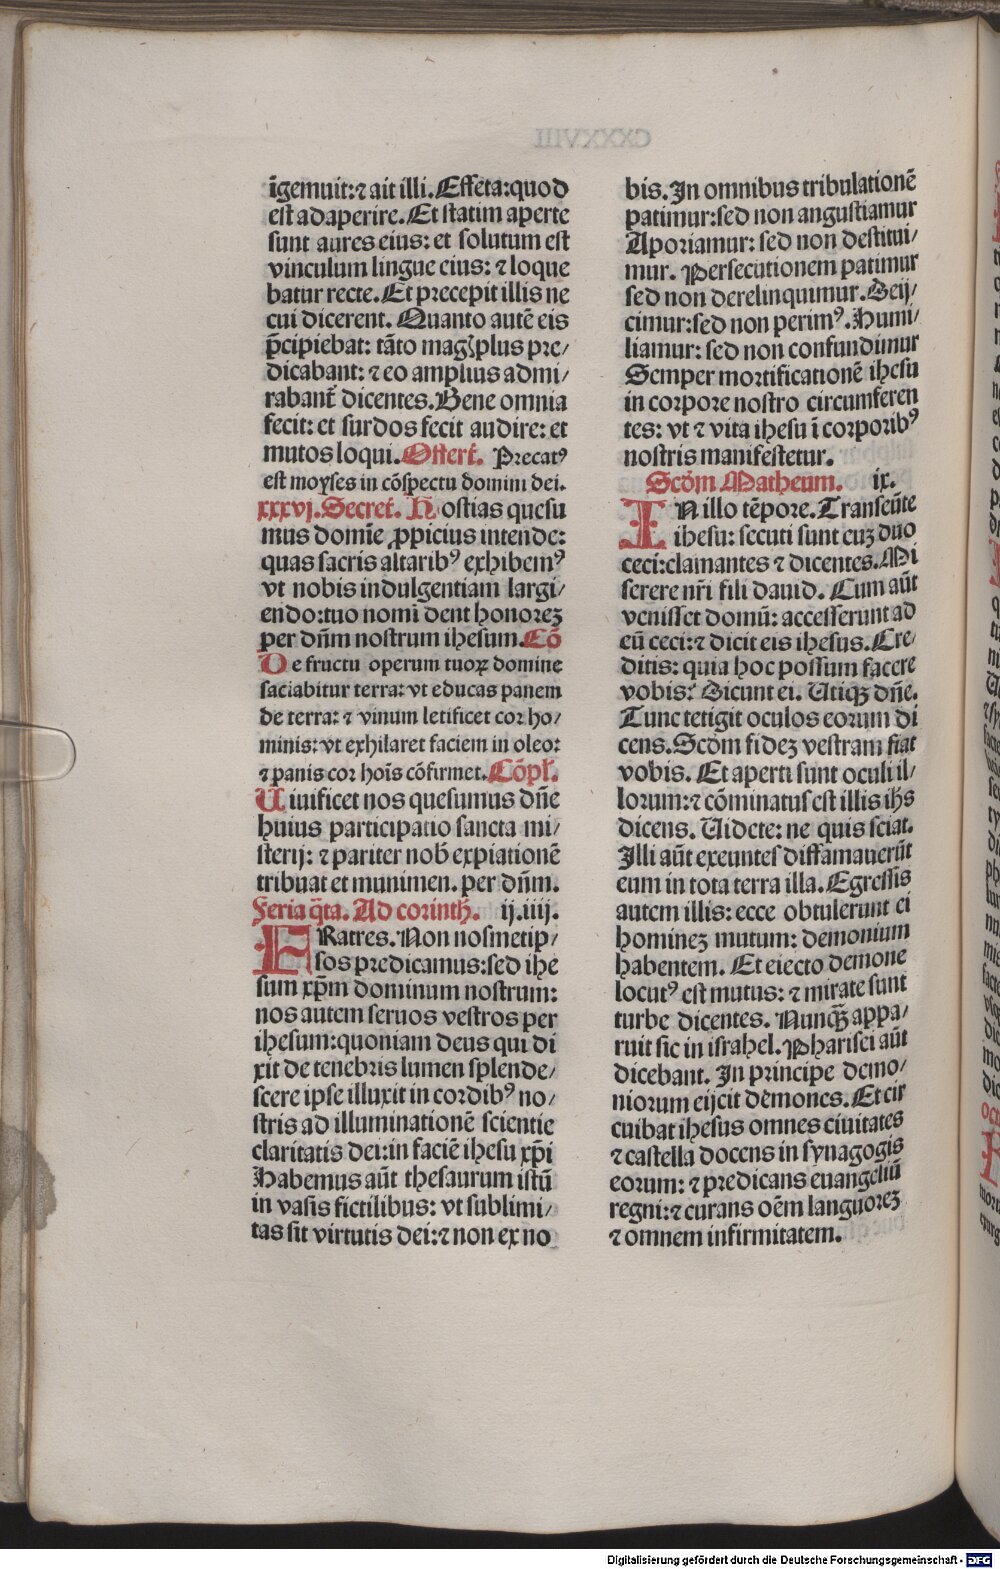 ĩgemuit:⁊ ait illi.Effeta:quod
est adaperire.Et statim aperte
sunt aures eius: et solutum est
vinculum lingue eius: ⁊ loque
batur recte.Et precepit illis ne
cui dicerent. Quanto autē eis
p̄cipiebat: tāto magꝭ plus pre/
dicabant: ⁊ eo amplius admi/
rabant̄ dicentes.Bene omnia
fecit: et surdos fecit audire: et
mutos loqui.Offert̄. Precatꝰ
est moyses in cōspectu domini dei.
xxxvj.Secret̄. Hostias quesu
mus domīe ꝓpicius intende:
quas sacris altaribꝰ exhibemꝰ
vt nobis indulgentiam largi/
endo:tuo nomī dent honoreꝫ
per dn̄m nostrum ihesum.Cō
De fructu operum tuoꝝ domine
saciabitur terra: vt educas panem
de terra: ⁊ vinum letificet cor ho/
minis: vt exhilaret faciem in oleo:
⁊ panis cor hoīs cōfirmet.Cōpl̄.
Uiuificet nos quesumus dn̄e
huius participatio sancta mi/
sterij: ⁊ pariter nob̄ expiationē
tribuat et munimen. per dn̄m.
Feria q̄ta. Ad corinth̄. ij.iiij.
FRatres. Non nosmetip/
sos predicamus:sed ihe
sum xp̄m dominum nostrum:
nos autem seruos vestros per
ihesum:quoniam deus qui di
xit de tenebris lumen splende/
scere ipse illuxit in cordibꝰ no/
stris ad illuminationē scientie
claritatis dei:in faciē ihesu xp̄i
Habemus aūt thesaurum istū
in vasis fictilibus: vt sublimi/
tas sit virtutis dei:⁊ non ex no
bis.In omnibus tribulationē
patimur:sed non angustiamur
Aporiamur: sed non destitui/
mur. Persecutionem patimur
sed non derelinquimur.Deij/
cimur:sed non perimꝰ.Humi/
liamur: sed non confundimur
Semper mortificationē ihesu
in corpore nostro circumferen
tes: vt ⁊ vita ihesu ī corporibꝰ
nostris manifestetur.
Scd̄m Matheum. ix.
IN illo tēpore.Transeūte
ihesu: secuti sunt euꝫ duo
ceci:clamantes ⁊ dicentes.Mi
serere nr̄i fili dauid. Cum aūt
venisset domū: accesserunt ad
eū ceci:⁊ dicit eis ihesus.Cre/
ditis: quia hoc possum facere
vobis? Dicunt ei. Utiqꝫ dn̄e.
Tunc tetigit oculos eorum di
cens.Scd̄m fideꝫ vestram fiat
vobis. Et aperti sunt oculi il/
lorum:⁊ cōminatus est illis ihs̄
dicens. Uidete: ne quis sciat.
Illi aūt exeuntes diffamauerūt
eum in tota terra illa.Egressis
autem illis: ecce obtulerunt ei
homineꝫ mutum: demonium
habentem. Et eiecto demone
locutꝰ est mutus: ⁊ mirate sunt
turbe dicentes. Nunqꝫ̄ appa/
ruit sic in israhel.Pharisei aūt
dicebant. In principe demo/
niorum eijcit demones.Et cir
cuibat ihesus omnes ciuitates
⁊ castella docens in synagogis
eorum: ⁊ predicans euangeliū
regni:⁊ curans oēm languoreꝫ
⁊ omnem infirmitatem.
Digitalisierung gefördert durch die Deutsche Forschungsgemeinschaft - DFG